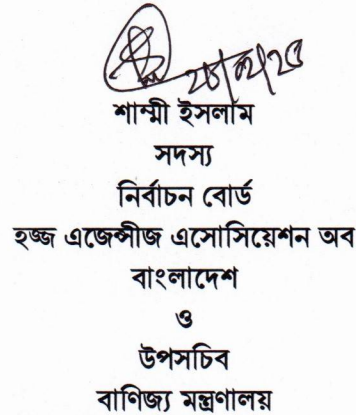 শাম্মী ইসলাম
সদস্য
নির্বাচন বোর্ড
হজ্জ এজেন্সীজ এসোসিয়েশন অব
বাংলাদেশ
ও
উপসচিব
বাণিজ্য মন্ত্রণালয়